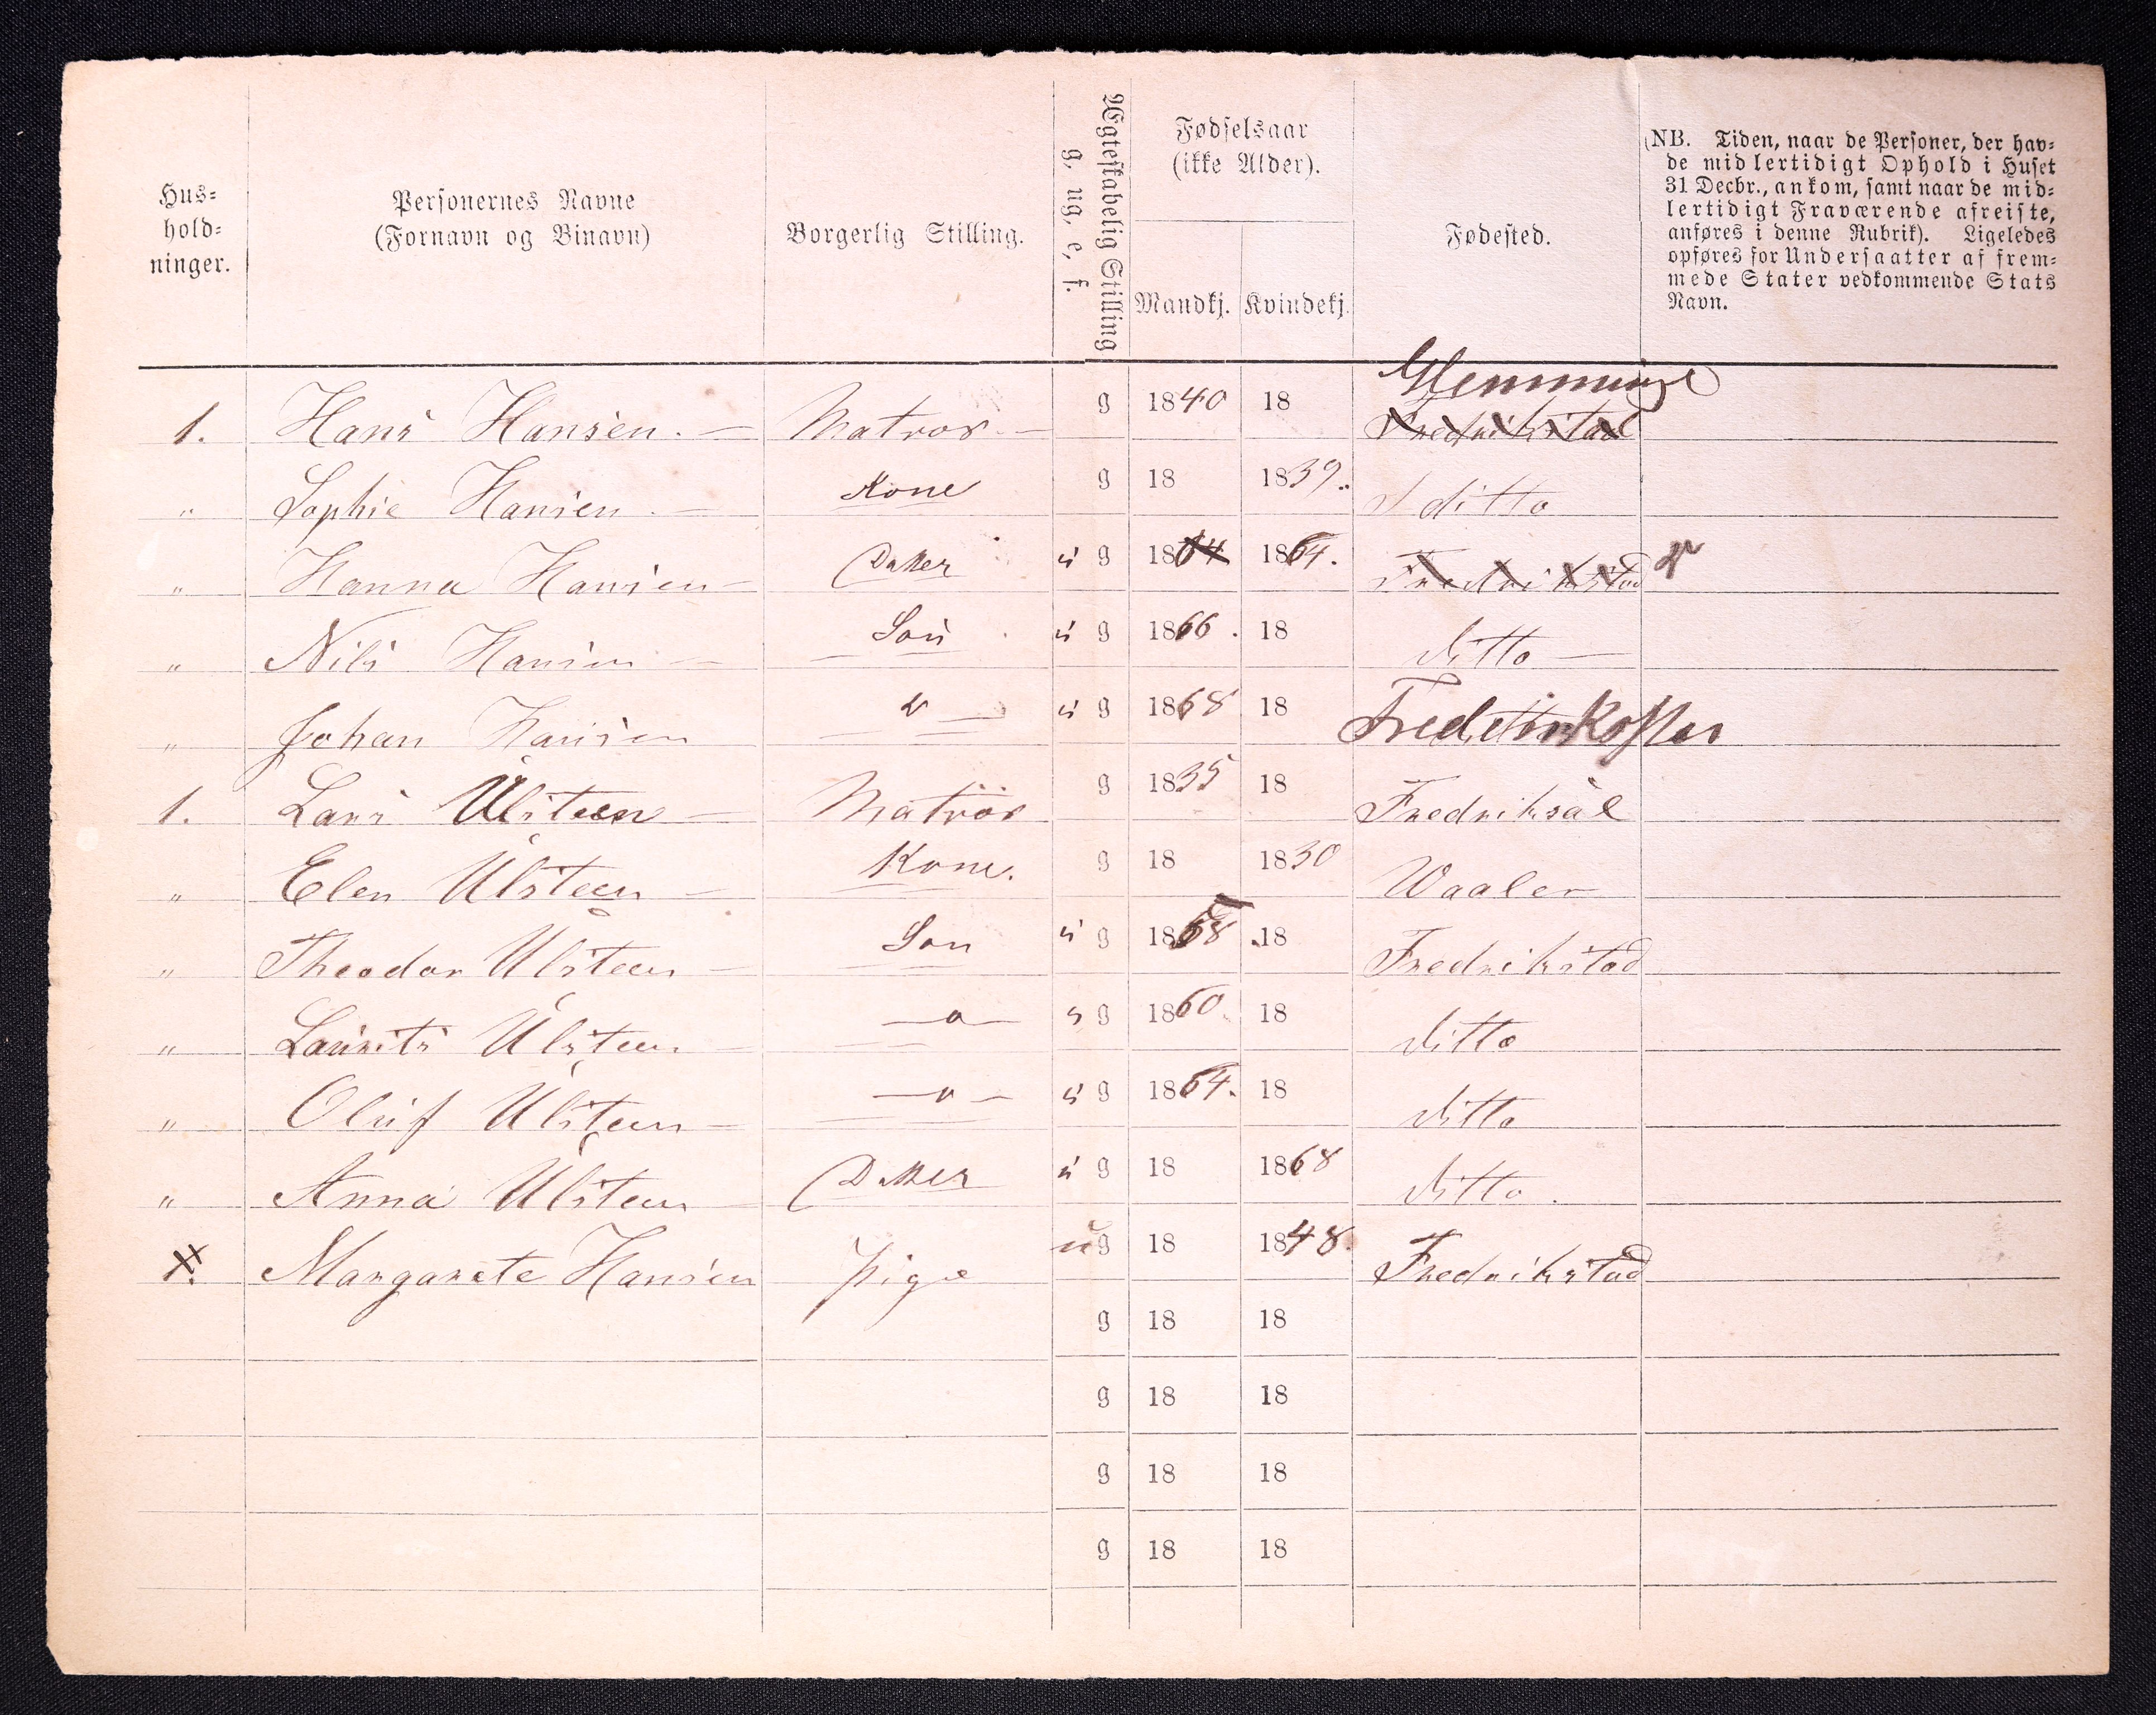 Hus-
hold-
ninger.
Personernes Navne
(Fornavn og Binavn)
Borgerlig Stilling.
Ægteskabelig Stilling
g, ug, e, f.
Fødselsaar
(ikke Alder).
Mandkj. Kvindekj.
Fødested.
(NB. Tiden, naar de Personer, der hav-
de midlertidigt Ophold i Huset
31 Decbr., ankom, samt naar de mid-
lertidigt Fraværende afreiste,
anføres i denne Rubrik). Ligeledes
opføres for Undersaatter af frem-
mede Stater vedkommende Stats
Navn.
Glemminge
1. Hans Hansen. — Matros — g 1840 18 Fredrikstad
" Sophie Hansen — Kone g 18 1839. ditto
" Hanna Hansen — Datter u g 1864 1864. Fredrikstad
" Nils Hansen — Søn u g 1866. 18 ditto —
" Johan Hansen u g 1868 18
1. Lars Ulsteen — Matros g 1835 18
" Elen Ulsteen — Kone. g 18 1830 Waaler
" Theodor Ulsteen — Søn u g 1858. 18 Fredrikstad
" Laurits Ulsteen — " — u g 1860. 18 ditto
" Oluf Ulsteen — — " — u g 1864. 18 ditto
" Anna Ulsteen Datter u g 18 1868 ditto.
Margarete Hansen Pige u g 18 1848. Fredrikstad
g 18 18
g 18 18
g 18 18
g 18 18